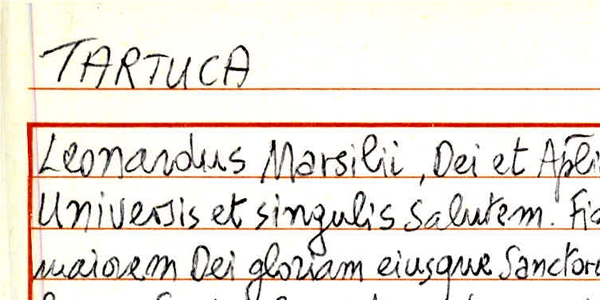 TARTUCA
Leonardus Marsilii, Dei et Ap̄li
Universis et singulis salutem. Fi
maiorem Dei gloriam eiusque Sanctor